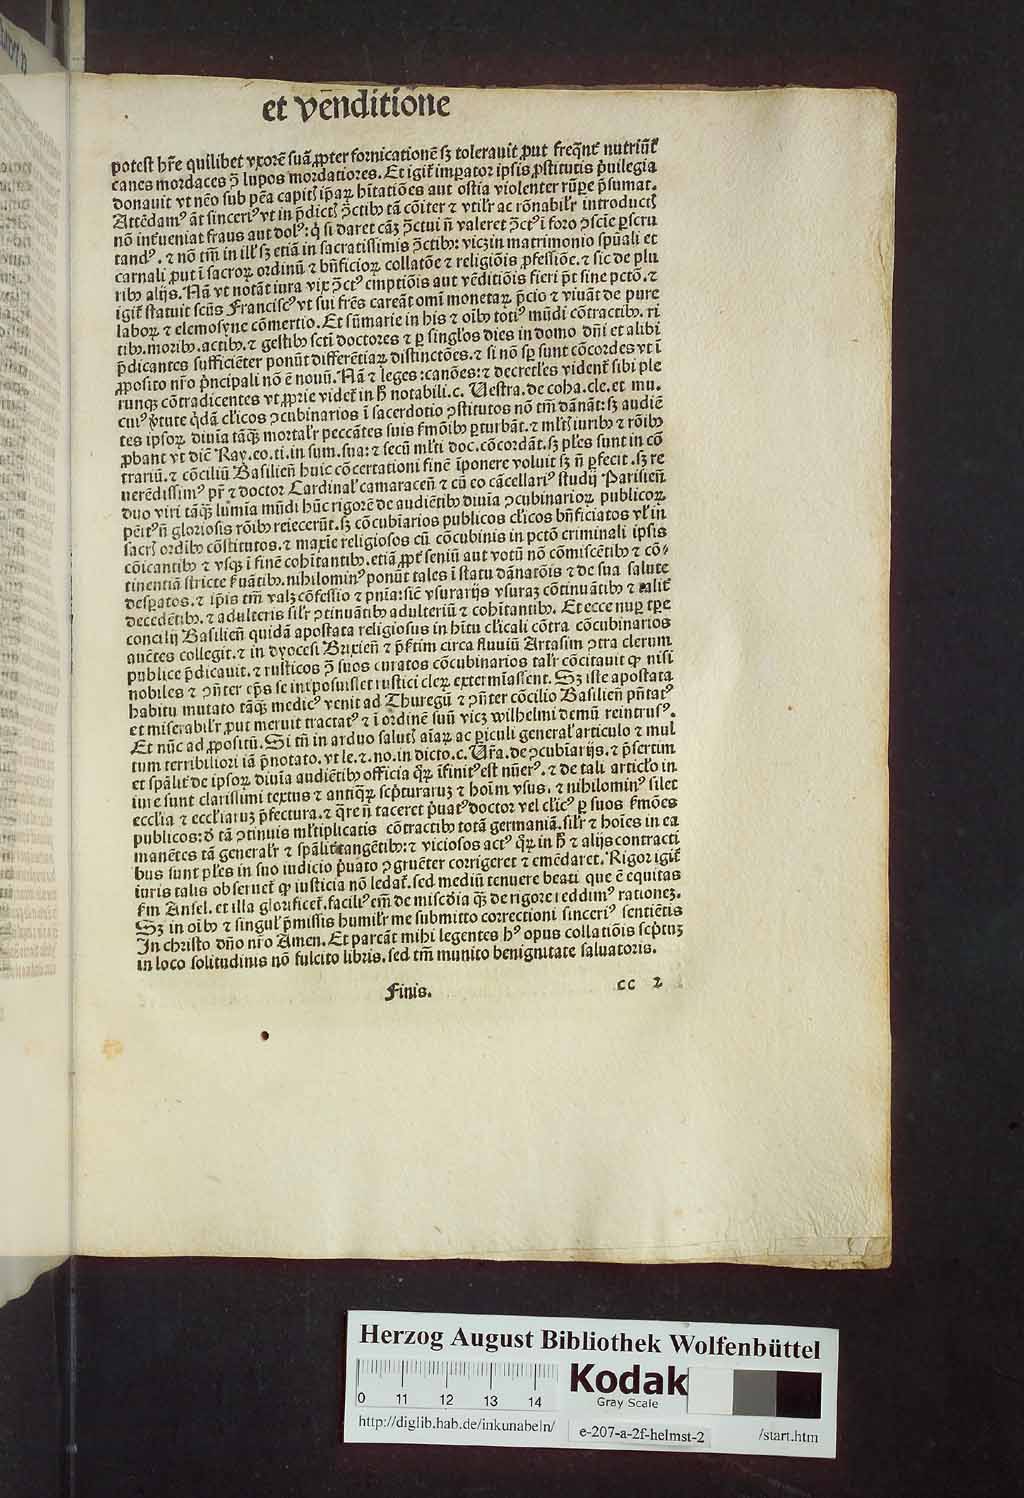 et vēnditione
potest hr̄e quilibet vxorē suā ꝓpter fornicationē sꝫ tolerauit ꝓut freq̄nt̄ nutriūt̄
canes mordaces ꝯ̄ lupos mordatiores. Et igit̄ imꝑator ipsis ꝓstitutis p̄uilegia
donauit vt nēo sub pēa capitꝭ ip̄aꝝ hītatiōes aut ostia violenter rūꝑe p̄sumat.
Attēdamꝰ āt sinceriꝰ vt in p̄dictꝭ ꝯ̄ctibꝫ tā cōiter ⁊ vtilr̄ ac rōnabilr̄ introductꝭ
nō int̄ueniat fraus aut dolꝰ: q̄ si daret cāꝫ ꝯ̄ctui n̄ valeret ꝯ̄ctꝰ i foro ꝯscīe ꝑscru
tandꝰ. ⁊ nō tm̄ in ill̄ sꝫ etiā in sacratissimis ꝯ̄ctibꝫ: vicꝫ in matrimonio spūali et
carnali ꝓut ī sacroꝝ ordinū ⁊ bn̄ficioꝝ collatōe ⁊ religiōis ꝓfessiōe. ⁊ sic de plu
ribꝫ alijs. Nā vt notāt iura vix ꝯ̄ctꝰ emptiōis aut vēditiōis fieri p̄t sine pctō. ⁊
igit̄ statuit scūs Franciscꝰ vt sui fr̄es careāt omī monetaꝝ p̄cio ⁊ viuāt de pure
laboꝝ ⁊ elemosyne cōmertio. Et sūmarie in his ⁊ oībꝫ totiꝰ mūdi cōtractibꝫ. ri
tibꝫ. moribꝫ. actibꝫ. ⁊ gestibꝫ scti doctores ⁊ ꝑ singl̄os dies in domo dn̄i et alibi
p̄dicantes sufficiēter ponūt differētiaꝝ distinctōes. ⁊ si nō sꝑ sunt cōcordes vt ī
ꝓposito nr̄o p̄ncipali nō ē nouū. Nā ⁊ leges: canōes: ⁊ decretl̄es vident̄ sibi ple
runqꝫ cōtradicentes vt ꝓprie videt̄ in ħ notabili. c. Vestra. de coha. cle. et mu.
cuiꝰ v̄tute q̄dā cl̄icos ꝯcubinarios ī sacerdotio ꝯstitutos nō tm̄ dānāt: sꝫ audiē
tes ipsoꝝ diuia tāqꝫ mortalr̄ peccātes suis fmōibꝫ ꝑturbāt. ⁊ ml̄tꝭ iuribꝫ ⁊ rōibꝫ
ꝓbant vt diē Ray. eo. ti. in sum. sua: ⁊ secū ml̄ti doc. cōcordāt. sꝫ pl̄es sunt in cō
trariū. ⁊ cōciliū Basilien̄ huic cōcertationi finē īponere voluit sꝫ n̄ ꝑfecit. sꝫ re
uerēdissimꝰ pr̄ ⁊ doctor Cardinal̄ camaracen̄ ⁊ cū eo cācellariꝰ studij Parisien̄
duo viri tāqꝫ lumīa mūdi hūc rigorē de audiētibꝫ diuia ꝯcubinarioꝝ publicoꝝ
pēitꝰ n̄ gloriosis rōibꝫ reiecerūt. sꝫ cōcubīarios publicos cl̄icos bn̄ficiatos vl̄ in
sacrꝭ ordībꝫ cōstitutos. ⁊ maxīe religiosos cū cōcubinis in pctō criminali ipsis
cōicantibꝫ ⁊ vsqꝫ ī finē cohītantibꝫ. etiā ꝓpt̄ seniū aut votū nō cōmiscētibꝫ ⁊ cō-
tinentiā stricte fuātibꝫ. nihilominꝰ ponūt tales ī statu dānatōis ⁊ de sua salute
desꝑatos. ⁊ ip̄is tm̄ valꝫ cōfessio ⁊ pn̄ia: sic̄ vsurarijs vsuraꝫ cōtinuātibꝫ ⁊ talit̄
decedētibꝫ. ⁊ adulteris silr̄ ꝯtinuātibꝫ adulteriū ⁊ cohītantibꝫ. Et ecce nuꝑ tꝑe
concilij Basilien̄ quidā apostata religiosus in hītu cl̄icali cōtra cōcubinarios
auētes collegit. ⁊ in dyocesi Brixien̄ ⁊ p̄ftim circa fluuiū Artasim ꝯtra clerum
publice p̄dicauit. ⁊ rusticos ꝯ̄ suos curatos cōcubinarios talr̄ cōcitauit ꝙ nisi
nobiles ⁊ ꝯn̄ter ep̄s se interposuisset rustici cleꝝ extermīassent. Sꝫ iste apostata
habitu mutato tāqꝫ medicꝰ venit ad Thuregū ⁊ ꝯn̄ter cōcilio Basilien̄ pn̄tatꝰ
et miserabilr̄ ꝓut meruit tractatꝰ ⁊ ī ordinē suū vicꝫ wilhelmi demū reintrusꝰ.
Et nūc ad ꝓpositū. Si tn̄ in arduo salutꝭ aīaꝝ ac ꝑiculi general̄ articulo ⁊ mul
tum terribiliori iā p̄notato. vt le. ⁊ no. in dicto. c. Vr̄a. de ꝯcubīarijs. ⁊ p̄sertim
et spālit̄ de ipsoꝝ diuia audiētibꝫ officia qꝝ̄ īfinitꝰ est nūerꝰ. ⁊ de tali articl̄o in
iure sunt clarissimi textus ⁊ antiqꝝ̄ scpturaruꝫ ⁊ hoīm vsus. ⁊ nihilominꝰ silet
eccl̄ia ⁊ eccl̄iaruꝫ p̄fectura. ⁊ q̄re n̄ taceret p̄uatꝰ doctor vel cl̄icꝰ ꝑ suos fmōes
publicos: d̄ tā ꝯtinuis ml̄tiplicatis cōtractibꝫ totā germaniā. silr̄ ⁊ hoīes in ea
manētes tā generalr̄ ⁊ spālit̄ tangētibꝫ: ⁊ viciosos actꝰ qꝝ̄ in ħ ⁊ alijs contracti
bus sunt pl̄es in suo iudicio p̄uato ꝯgruēter corrigeret ⁊ emēdaret. Rigor igit̄
iuris talis obseruet̄ ꝙ iusticia nō ledat̄. sed mediū tenuere beati que ē equitas
fm Ansel. et illa glorificet̄. faciliꝰ em̄ de misc̄dia qꝫ̄ de rigore reddimꝰ rationeꝫ.
Sꝫ in oībꝫ ⁊ singul̄ p̄missis humilr̄ me submitto correctioni sinceriꝰ sentiētis
In christo dn̄o nr̄o Amen. Et parcāt mihi legentes hꝰ opus collatiōis scptuꝫ
in loco solitudinis nō fulcito libris. sed tm̄ munito benignitate saluatoris.
Finis.
cc 2
Herzog August Bibliothek Wolfenbüttel
0 11 12 13 14
Kodak
Gray Scale
http://diglib.hab.de/inkunabeln/
e-207-a-2f-helmst-2
/start.htm